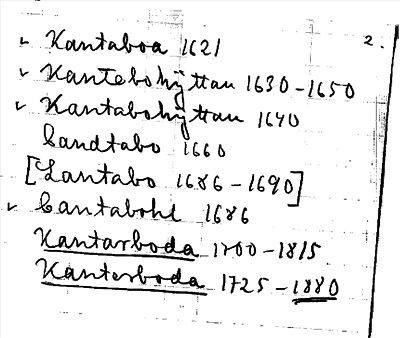 2.
✓ Kantaboa 1621
✓ Kantebohÿttan 1630-1650
✓ Kantabohÿttan 1640
Candtabo 1660
[Lantabo 1686-1690]
✓ Cantabohl 1686
Kantarboda 1700-1815
Kanterboda 1725-1880